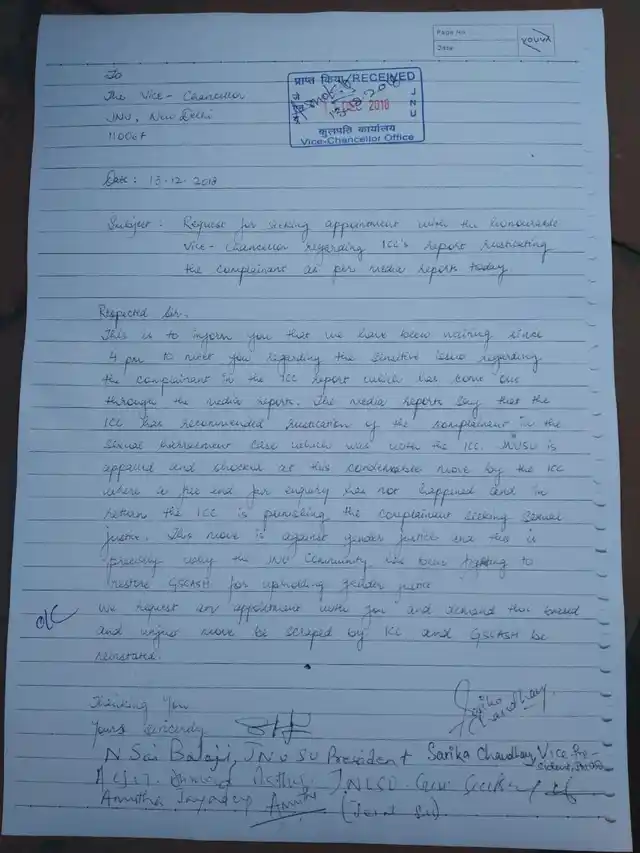 Page No
Date
YOUVA
To
The Vice-Chancellor
JNU, New Delhi
110067
प्राप्त किया/RECEIVED
DEC 2018
JNU
कुलपति कार्यालय
Vice-Chancellor Office
Date: 13.12.2018
Subject: Request for seeking appointment with the honourable
Vice-Chancellor regarding ICC's report rusticating
the complainant as per media reports today
Respected Sir,
This is to inform you that we have been waiting since
4 pm to meet you regarding the sensitive issue regarding
the complainant in the ICC report which has come out
through the media reports. The media reports say that the
ICC has recommended rustication of the complainant in the
sexual harassment case which was with the ICC. JNUSU is
appalled and shocked at this condemnable move by the ICC
where a free and fair enquiry has not happened and in
return the ICC is punishing the complainant seeking sexual
justice. This move is against gender justice and this is
precisely why the JNU community has been fighting to
restore GSCASH for upholding gender justice
We request an appointment with you and demand this biased
O/C
and unjust move be scraped by ICC and GSCASH be
reinstated.
Thanking You
Yours sincerely
Sarika Chaudhary
N Sai Balaji, JNUSU President Sarika Chaudhary, Vice Pre-
sident, JNUSU
JNUSU
Amutha Jayadeep Amutha (Joint Sec)